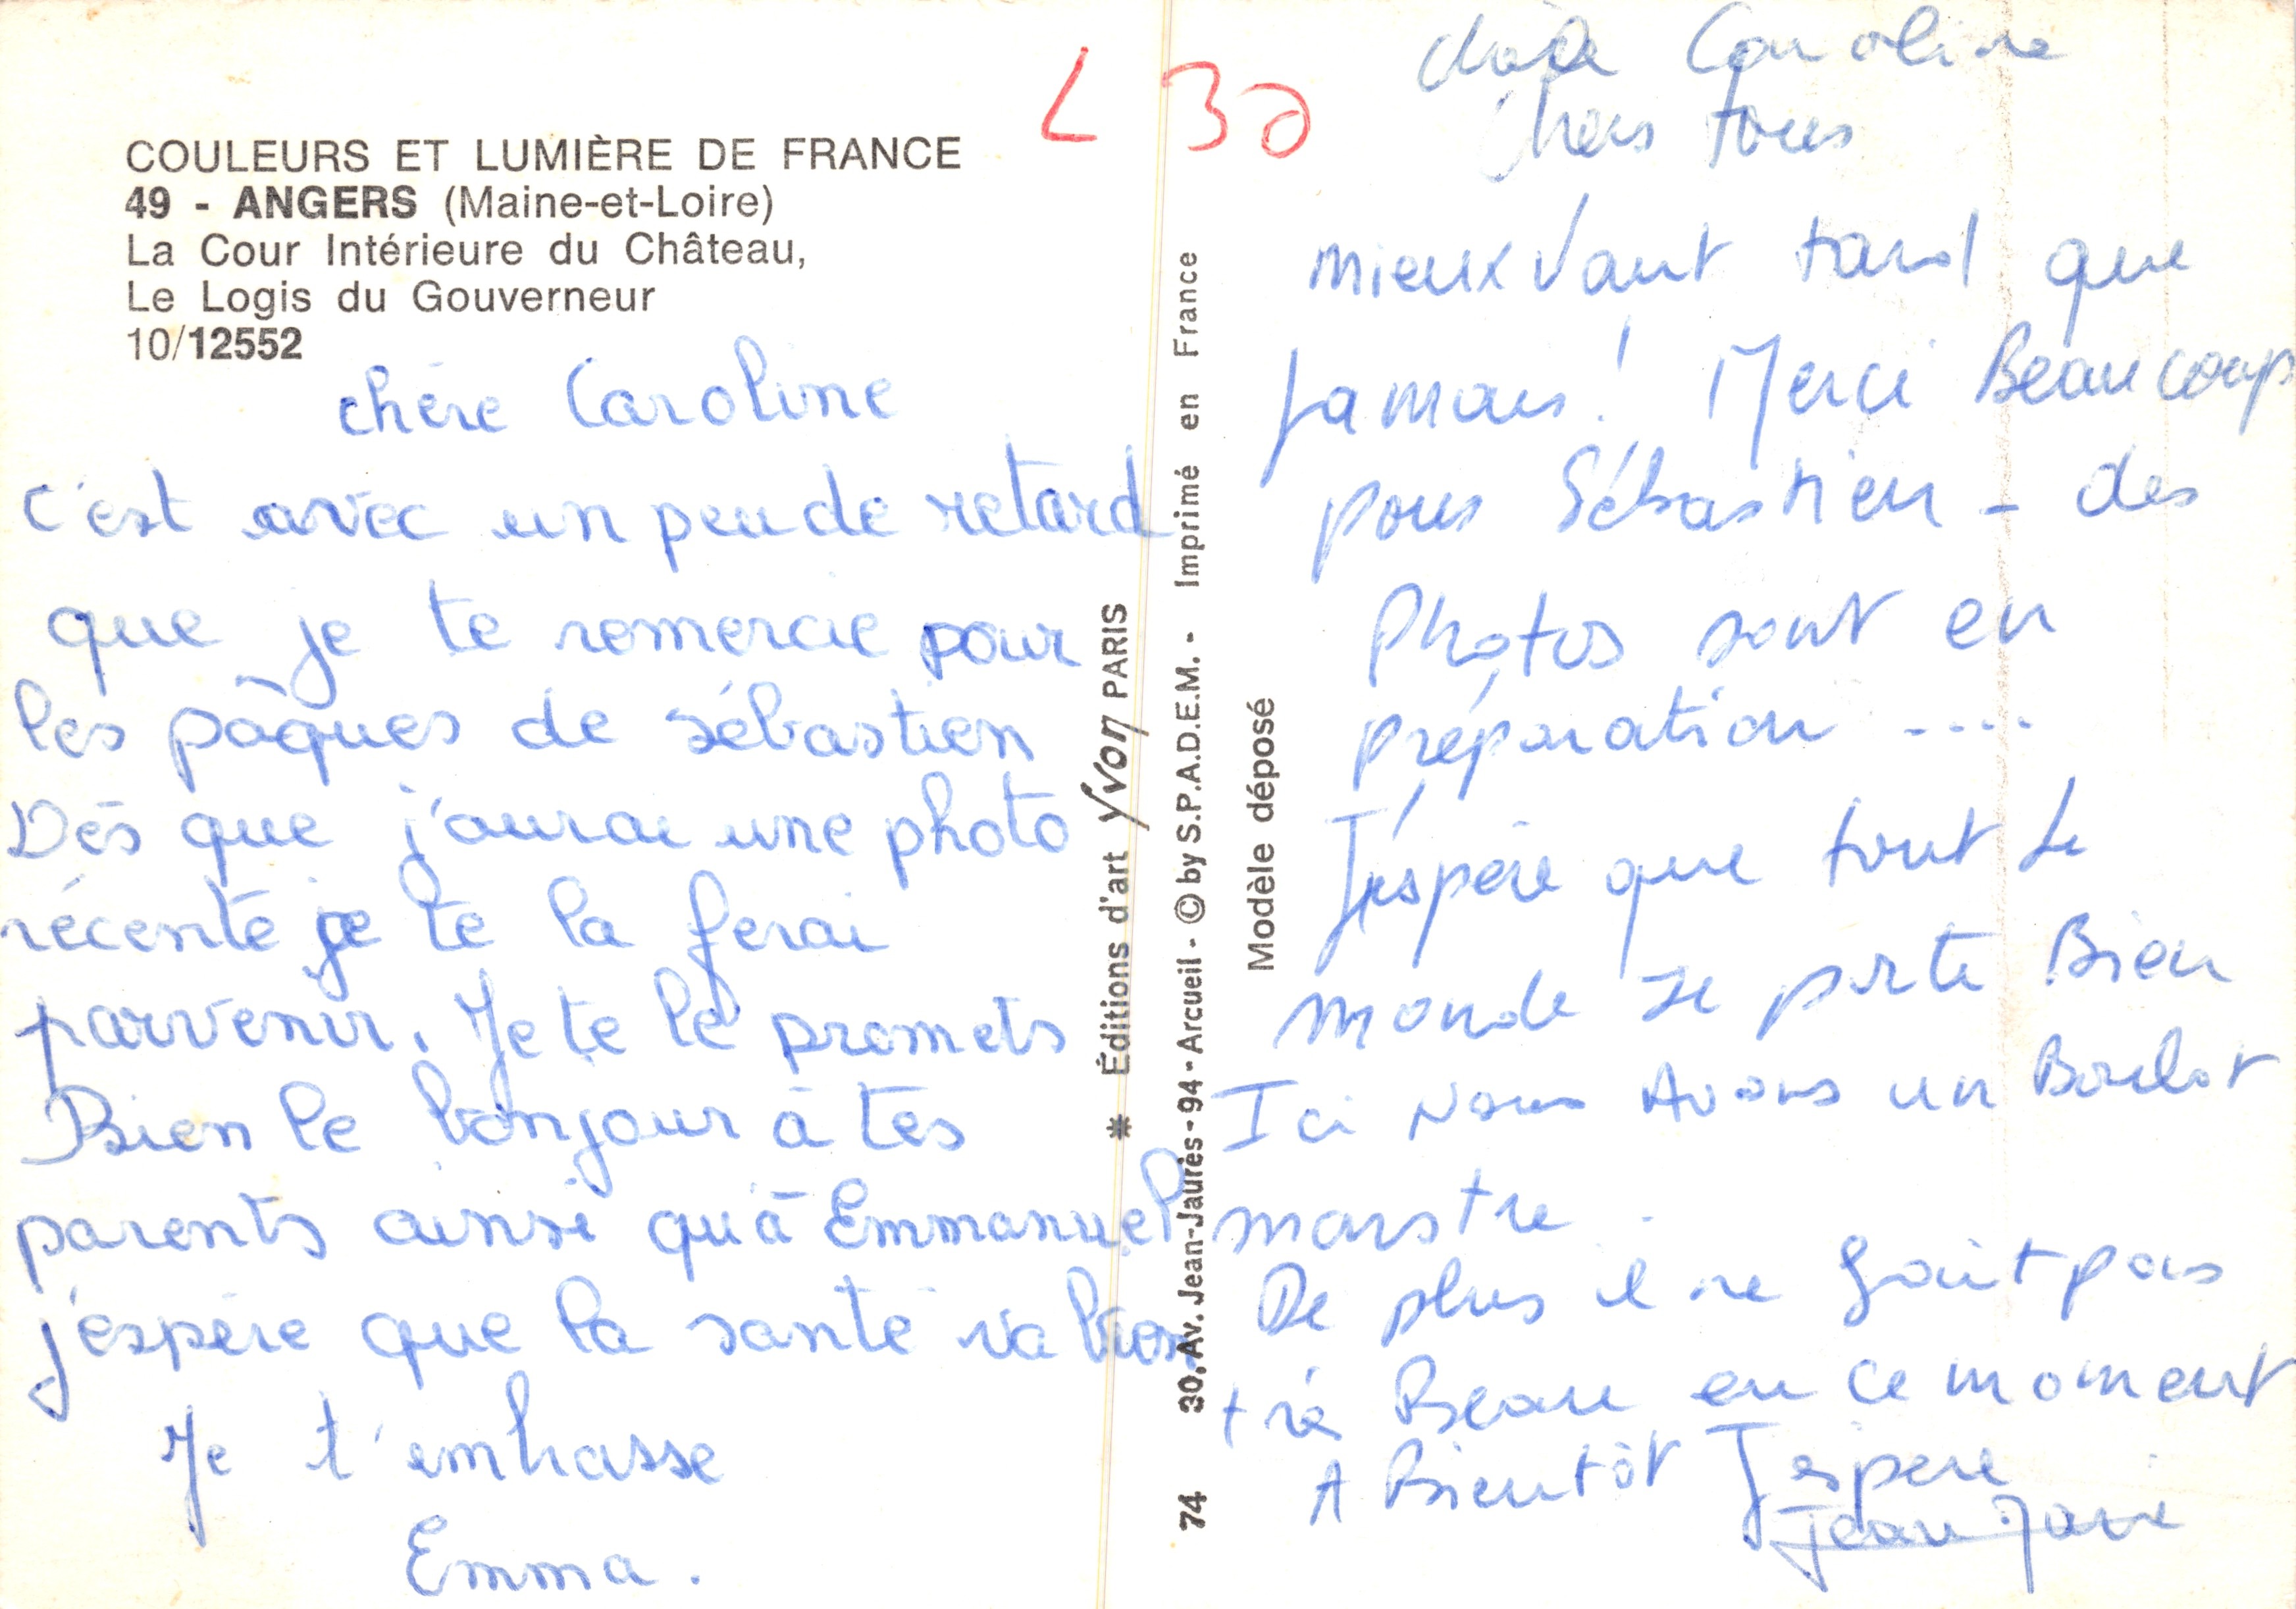 COULEURS ET LUMIÈRE DE FRANCE
49 - ANGERS (Maine-et-Loire)
La Cour Intérieure du Château,
Le Logis du Gouverneur
10/12552
chère Caroline
c'est avec un peu de retard
que je te remercie pour
les pâques de sébastien
Dès que j'aurai une photo
récente je te la ferai
parvenir. Je te le promets
Bien le bonjour à tes
parents ainsi qu'à Emmanuel
j'espère que la santé va bien
Je t'embrasse
Emma.
* Éditions d'art Yvon PARIS
74 30, Av. Jean-Jaurès - 94 - Arcueil - © by S.P.A.D.E.M. - Imprimé en France
Modèle déposé
L 30
chère Caroline
chers tous
mieux vaut tard que
Jamais! Merci Beaucoup
pour Sébastien - des
Photos sont en
préparation ....
J'espère que tout le
monde se porte Bien
Ici Nous Avons un Boulot
monstre.
De plus il ne fait pas
très Beau en ce moment
A Bientôt J'espère
Jean